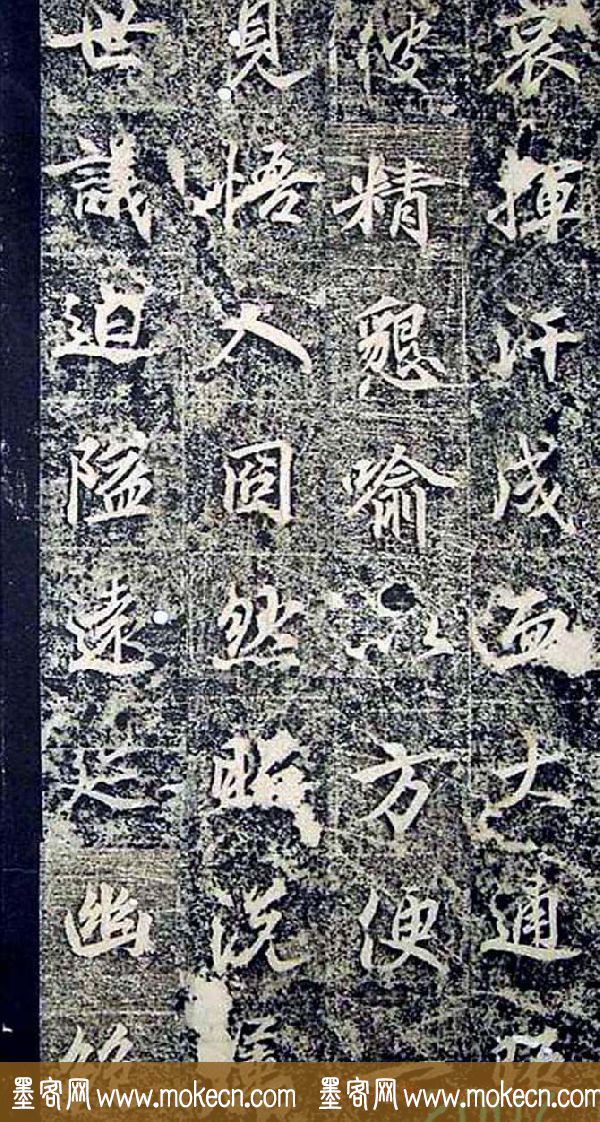 哀揮汗成洒大通
彼精懇喻以方便
見悟入囧然昭洗
世議迫隘遠迹幽
墨客网 www.mokecn.com 墨客网 www.mokecn.com